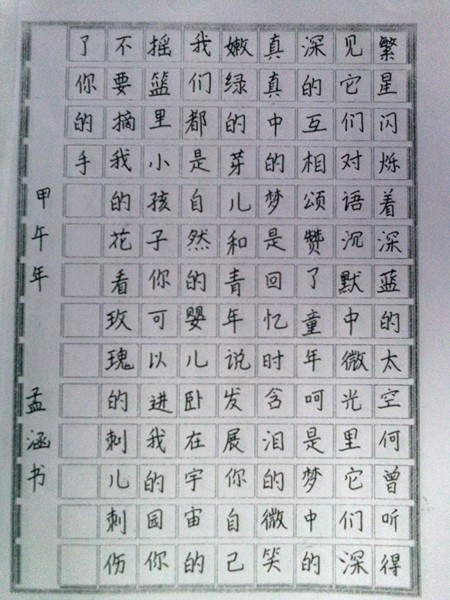 繁星闪烁着深蓝的太空何曾听得
见它们对语沉默中微光里它们深
深的互相颂赞了童年呵是梦中的
真真中的梦是回忆时含泪的微笑
嫩绿的芽儿和青年说发展你自己
我们都是自然的婴儿卧在宇宙的
摇篮里小孩子你可以进我的园你
不要摘我的花看玫瑰的刺儿刺伤
了你的手
甲午年 孟涵书